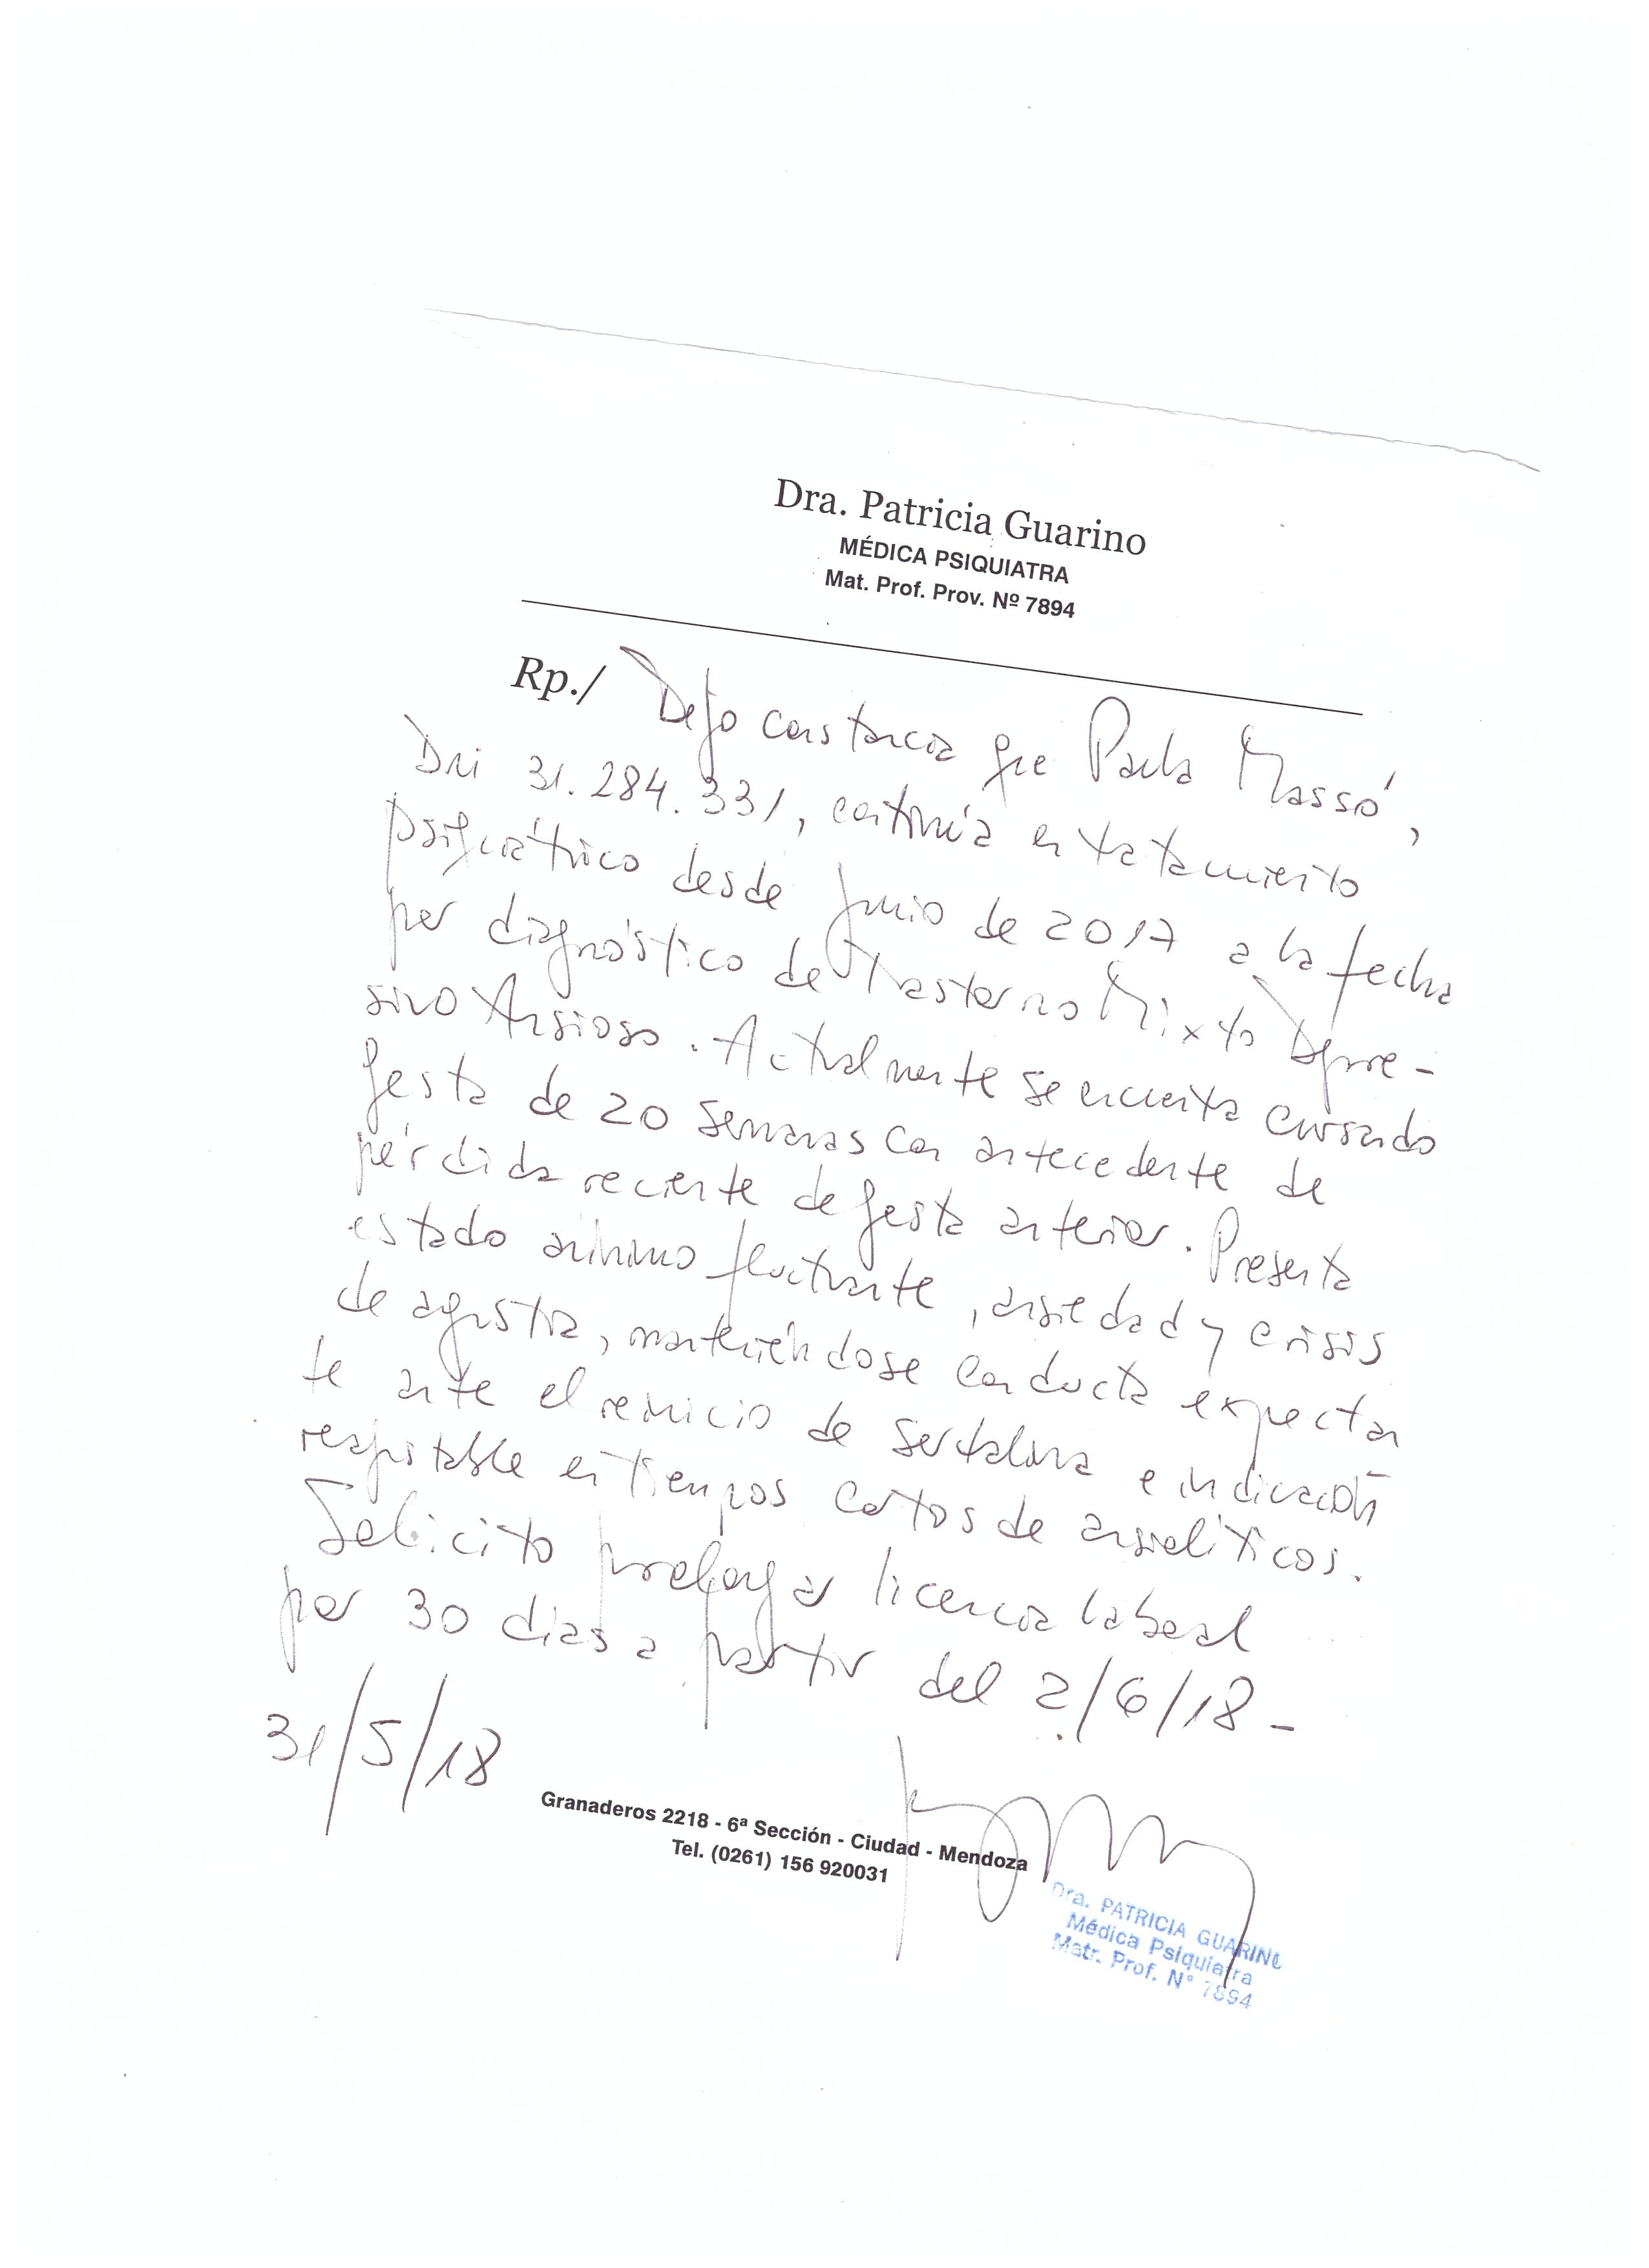 Dra. Patricia Guarino
MÉDICA PSIQUIATRA
Mat. Prof. Prov. Nº 7894
Rp./ Dejo constancia que Paula Massó,
DNI 31.284.331, continúa en tratamiento
psiquiátrico desde Junio de 2017 a la fecha
por diagnóstico de Trastorno Mixto Depre-
sivo Ansioso. Actualmente se encuentra cursando
gesta de 20 semanas con antecedente de
pérdida reciente de gesta anterior. Presenta
estado anímico fluctuante, ansiedad y crisis
de angustia, manteniéndose conducta expectan
te ante el reinicio de sertralina e indicación
reajustable en tiempos cortos de ansiolíticos.
Solicito prolongar licencia laboral
por 30 días a partir del 2/6/18-
31/5/18
Granaderos 2218 - 6ª Sección - Ciudad - Mendoza
Tel. (0261) 156 920031
Dra. PATRICIA GUARINO
Médica Psiquiatra
Matr. Prof. N° 7894